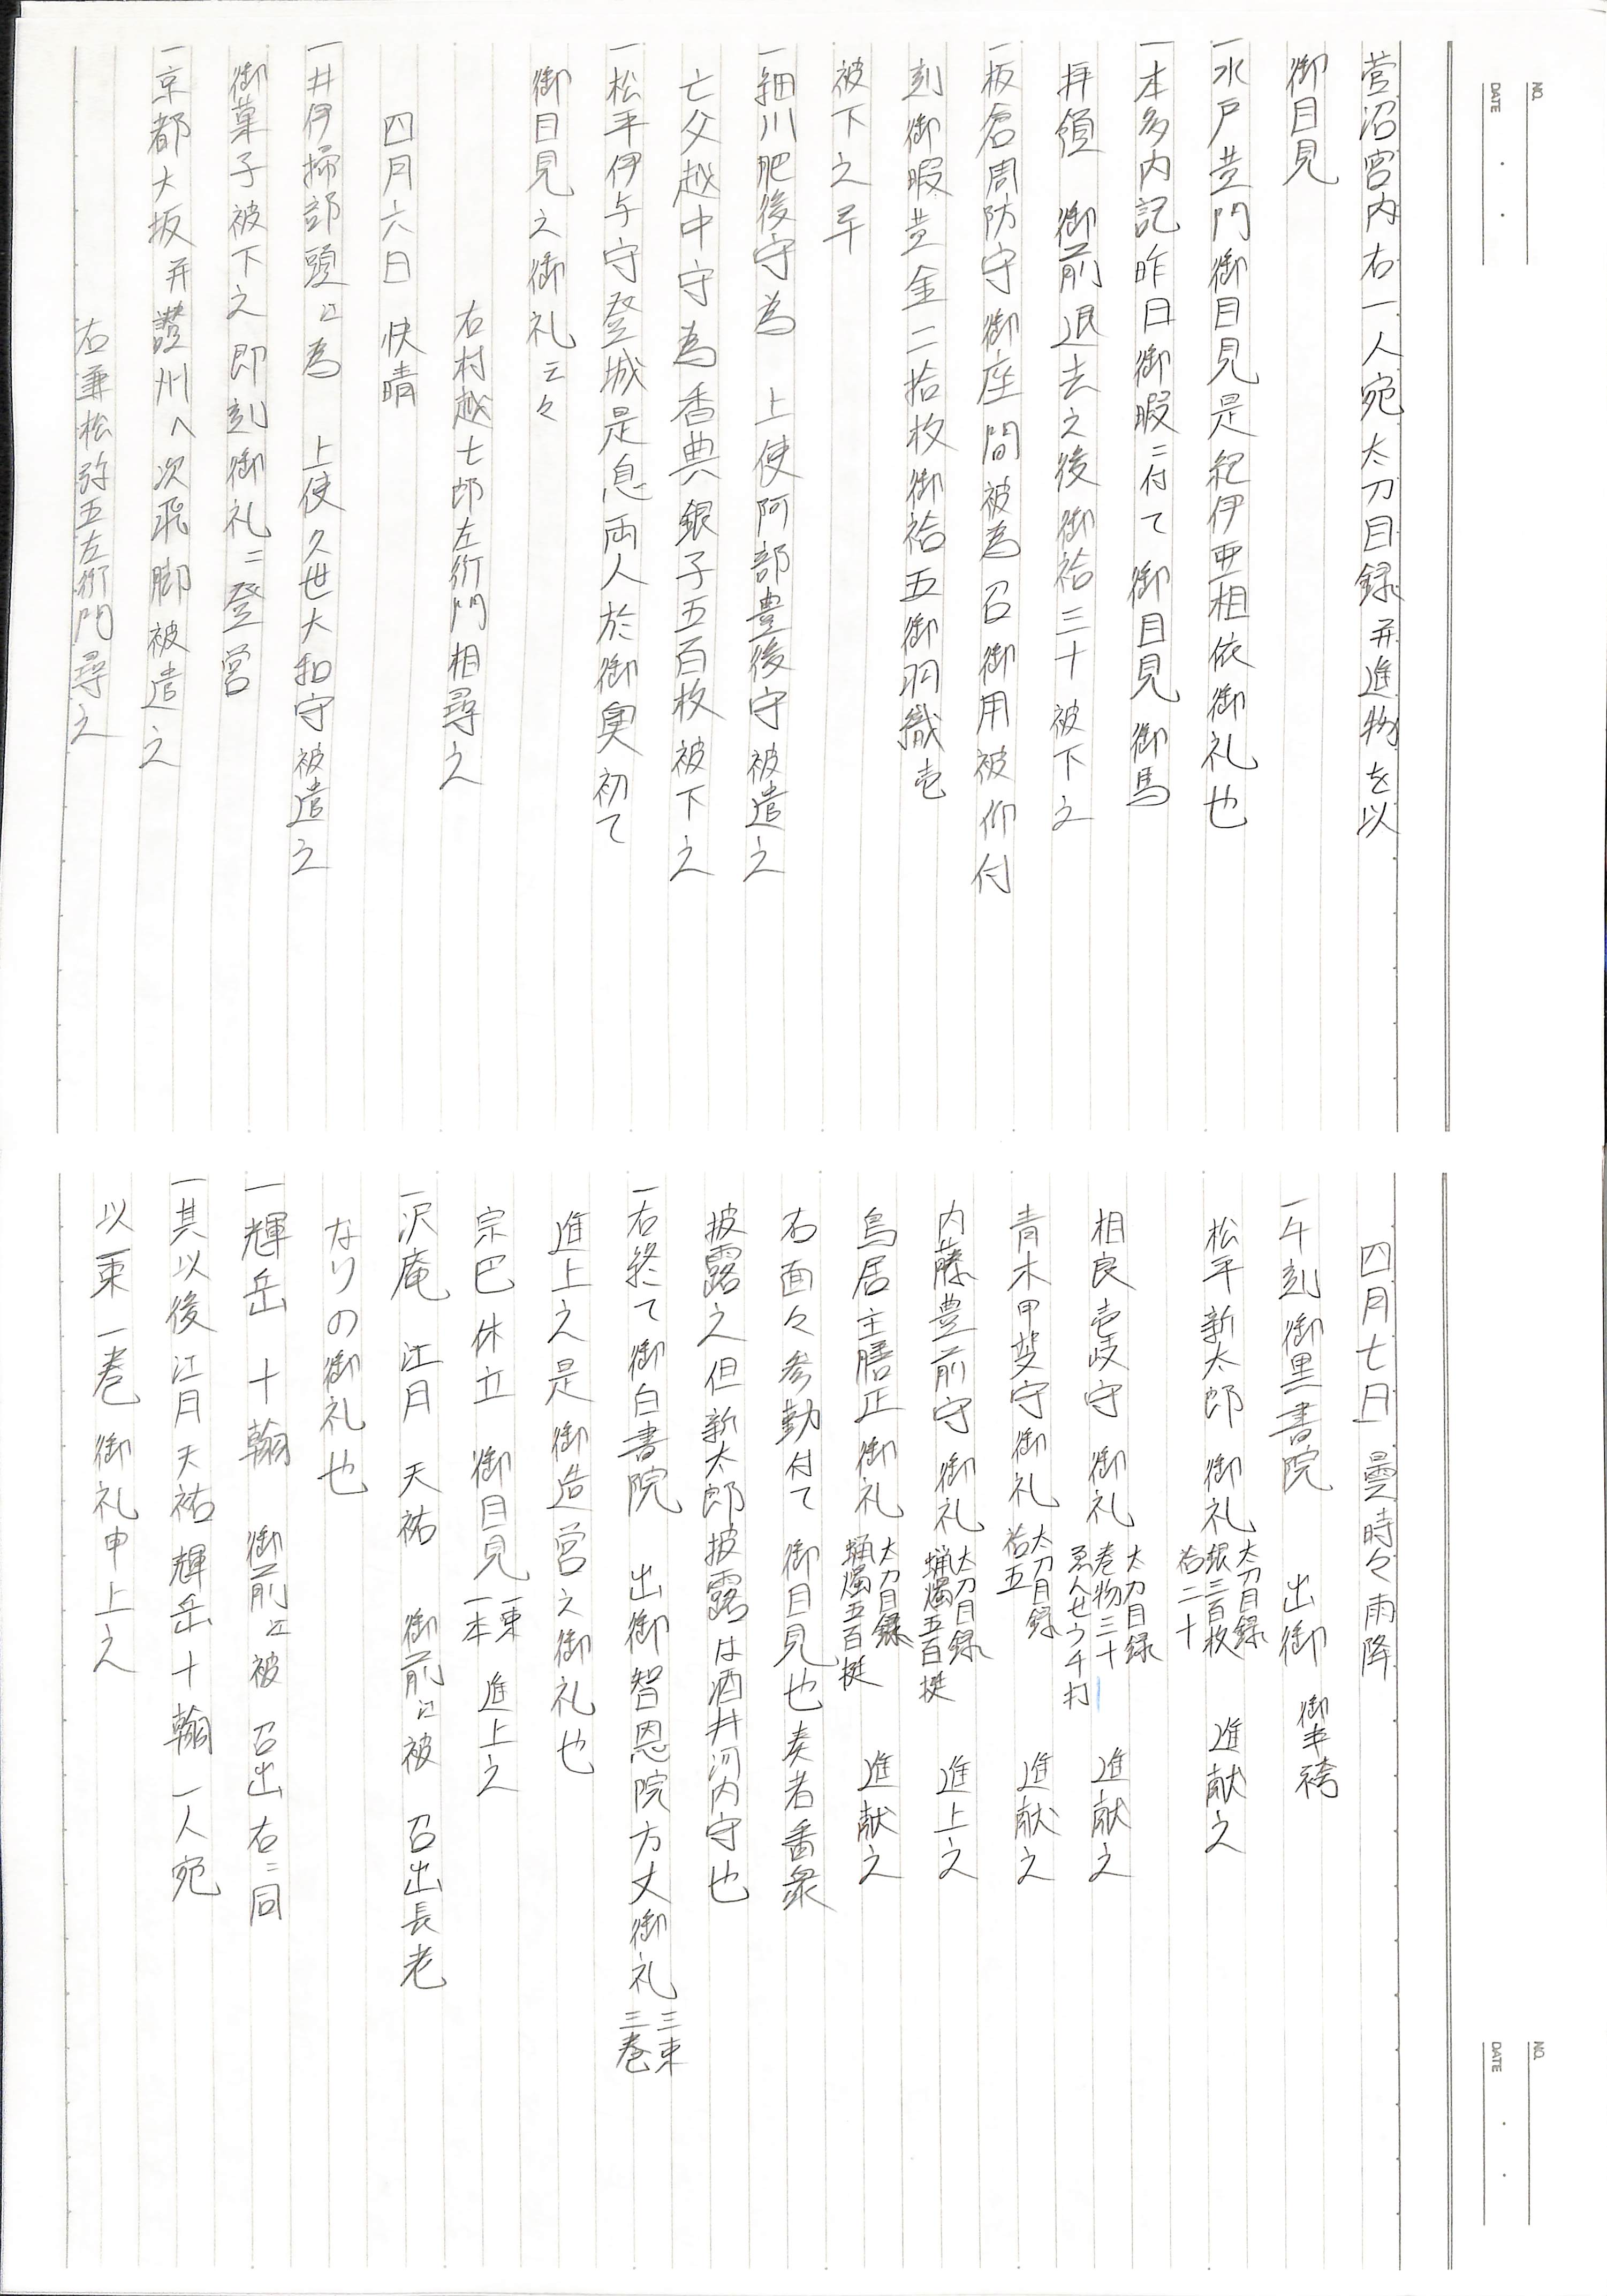 NO.
DATE
菅沼宮内右一人宛太刀目録并進物を以
御目見
一水戸黄門御目見是紀伊亜相依御礼也
一本多内記昨日御暇ニ付て御目見御馬
拝領 御前退去之後御袷三十被下之
一板倉周防守御座間被為召御用被仰付
刻御暇黄金二拾枚御袷五御羽織壱
被下之畢
一細川肥後守為 上使阿部豊後守被遣之
亡父越中守為香典銀子五百枚被下之
一松平伊与守登城是息両人於御奥初て
御目見之御礼云々
右村越七郎左衛門相尋之
四月六日 快晴
一井伊掃部頭江為 上使久世大和守被遣之
御菓子被下之即刻御礼ニ登営
一京都大坂并讃州へ次飛脚被遣之
右兼松弥五左衛門尋之
NO.
DATE
四月七日 曇時々雨降
一午刻御黒書院 出御 御半袴
松平新太郎 御礼 太刀目録 銀三百枚 袷二十 進献之
相良壱岐守 御礼 太刀目録 巻物三十 ゑんせう千打 進献之
青木甲斐守 御礼 太刀目録 袷五 進献之
内藤豊前守 御礼 太刀目録 蝋燭五百挺 進上之
鳥居主膳正 御礼 太刀目録 蝋燭五百挺 進献之
右面々参勤付て 御目見也奏者番衆
披露之但新太郎披露は酒井河内守也
一右終て御白書院 出御智恩院方丈御礼 三束 三巻
進上之是御造営之御礼也
宗巴休立 御目見 一束 一本 進上之
一沢庵 江月 天祐 御前江被 召出長老
なりの御礼也
一輝岳 十翰 御前江被 召出右ニ同
一其以後江月天祐輝岳十翰一人宛
以束一巻御礼申上之